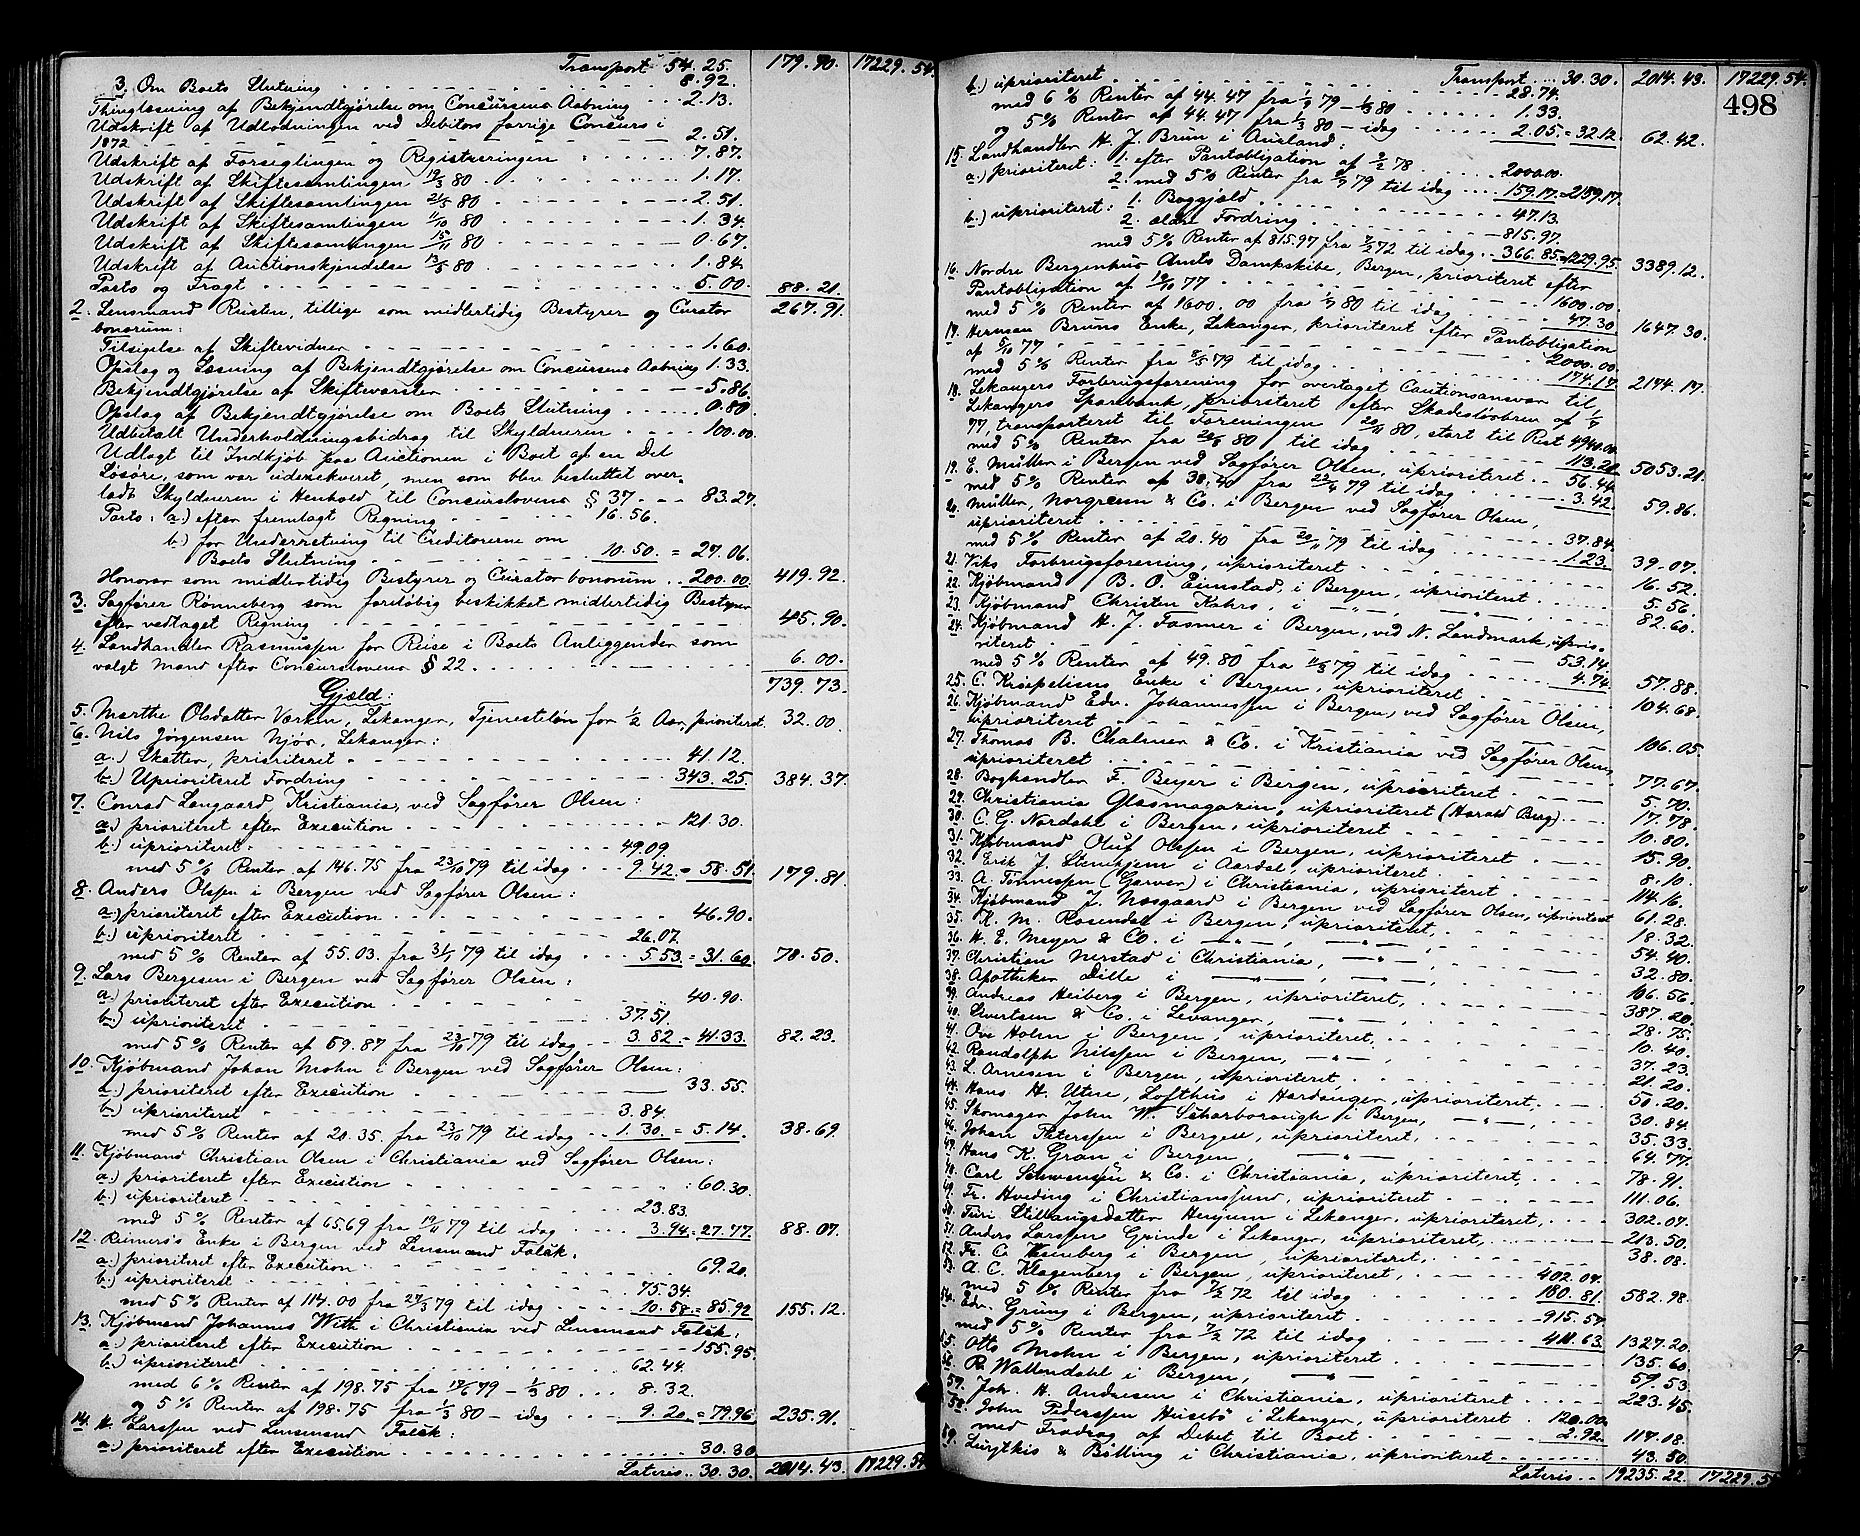 Transport 54.25. 179.90. 17229.54.
3, Om Boets Slutning 8.92.
Thinglæsning af Bekjendtgjørelse om Concursens Aabning 2.13.
Udskrift af Udlodningen ved Debitors forrige Concurs i
1872 2.51.
Udskrift af Forseglingen og Registreringen 7.87.
Udskrift af Skiftesamlingen 19/3 80 1.17.
Udskrift af Skiftesamlingen 21/5 80 2.51.
Udskrift af Skiftesamlingen 11/10 80 1.34.
Udskrift af Skiftesamlingen 15/11 80 0.67.
Udskrift af Auctionskjendelse 13/5 80 1.84.
Porto og Fragt 5.00. 88.21.
2. Lensmand Rusten, tillige som midlertidig Bestyrer og Curator 267.91.
bonorum:
Tilsigelse af Skiftevidner 1.60.
Opslag og Læsning af Bekjendtgjørelse om Concursens Aabning 1.33.
Bekjendtgjørelse af Skiftevarsler 5.86.
Opslag af Bekjendtgjørelse om Boets Slutning 0.80.
Udbetalt Underholdningsbidrag til Skyldneren 100.00.
Udlagt til Indkjøb paa Auctionen i Boet af en Del
Løsøre, som var udexekveret, men som blev besluttet over-
ladt Skyldneren i Henhold til Concurslovens § 37 83.27.
Porto: a.) efter fremlagt Regning 16.56.
b.) for Underretning til Creditorerne om
Boets Slutning 10.50. = 27.06.
Honorar som midlertidig Bestyrer og Curator bonorum 200.00. 419.92.
3. Sagfører Rønneberg som foreløbig beskikket midlertidig Bestyrer
efter vedtaget Regning 45.90.
4. Landhandler Rasmussen for Reise i Boets Anliggender som
valgt Mand efter Concurslovens § 22 6.00.
739.73.
Gjæld:
5. Marthe Olsdatter Værken, Lekanger, Tjenesteløn for 1/2 Aar, prioriteret 32.00
6. Nils Jørgensen Njøs, Lekanger:
a.) Skatter, prioriteret 41.12.
b.) Uprioriteret Fordring 343.25. 384.37.
7. Conrad Langaard, Kristiania, ved Sagfører Olsen:
a.) prioriteret efter Execution 121.30.
b.) uprioriteret: 49.09
med 5% Renter af 146.75 fra 23/10 79 til idag 9.42. = 58.51. 179.81.
8. Anders Olssen i Bergen ved Sagfører Olsen:
a.) prioriteret efter Execution 46.90.
b.) uprioriteret 26.07.
med 5% Renter af 55.03. fra 31/1 79 til idag 5.53. = 31.60. 78.50.
9. Lars Bergesen i Bergen ved Sagfører Olsen:
a.) prioriteret efter Execution 40.90.
b.) uprioriteret 37.51.
med 5% Renter af 59.87 fra 23/10 79 til idag 3.82. = 41.33. 82.23.
10. Kjøbmand Johan Mohn i Bergen ved Sagfører Olsen:
a.) prioriteret efter Execution 33.55.
b.) uprioriteret 3.84.
med 5% Renter af 20.35. fra 23/10 79 til idag 1.30. = 5.14. 38.69.
11. Kjøbmand Christian Olsen i Christiania ved Sagfører Olsen:
a.) prioriteret efter Execution 60.30.
b.) uprioriteret 23.83.
med 5% Renter af 65.69 fra 79 til idag 3.94. = 27.77. 88.07.
12. Reimers's Enke i Bergen ved Lensmand Falck:
a.) prioriteret efter Execution 69.20.
b.) uprioriteret 75.34.
med 5% Renter af 114.00 fra 27/3 79 til idag 10.58. = 85.92 155.12.
13. Kjøbmand Johannes With i Christiania ved Lensmand Falck:
a.) prioriteret efter Execution 155.95.
b.) uprioriteret 62.44.
med 6% Renter af 198.75 fra 79 – 1/3 80 8.32.
og 5% Renter af 198.75 fra 1/3 80 – idag 9.20. = 79.96. 235.91.
14. H. Larssen ved Lensmand Falck:
a.) prioriteret efter Execution 30.30
Lateris 30.30. 2014.43. 17229.54.
Transport 30.30. 2014.43. 17229.54.
498
b.) uprioriteret 28.74.
med 6% Renter af 44.47 fra 79 – 1/3 80 1.33.
og 5% Renter af 44.47 fra 1/3 80 – idag 2.05. = 32.12. 62.42.
15. Landhandler H. J. Brun i Aurland:
a.) prioriteret: 1. efter Pantobligation af 2/2 78 2000.00.
2. med 5% Renter fra 79 til idag 159.17. = 2159.17.
b.) uprioriteret: 1. Boggjæld 47.13.
2. ældre Fordring 815.97.
med 5% Renter af 815.97 fra 7/2 72 til idag 366.85. = 1229.95. 3389.12.
16. Nordre Bergenhus Amts Dampskibe, Bergen, prioriteret efter
Pantobligation af 19/10 77 1600.00.
med 5% Renter af 1600.00 fra 80 til idag 47.30 1647.30.
17. Herman Bruns Enke, Lekanger, prioriteret efter Pantobligation
af 5/10 77 2000.00.
med 5% Renter fra 79 til idag 174.17. 2174.17.
18. Lekangers Forbrugsforening for overtaget Cautionsansvar til
Lekangers Sparebank, prioriteret efter Skadesløsbrev af
77, transporteret til Foreningen 80, stort til Rest 4940.00.
med 5% Renter fra 80 til idag 113.21. 5053.21.
19. E. Müller i Bergen ved Sagfører Olsen, uprioriteret 56.44.
med 5% Renter af 38.40 fra 79 til idag 3.42. 59.86.
20. Müller, Norgreen & Co. i Bergen ved Sagfører Olsen,
uprioriteret 37.84.
med 5% Renter af 20.40 fra 20/11 79 til idag 1.23. 39.07.
21. Viks Forbrugsforening, uprioriteret 16.52.
22. Kjøbmand B. O. Eimstad, i Bergen, uprioriteret 5.56.
23. Kjøbmand Christen Kahrs, i –"–, –"– 82.60.
24. Kjøbmand H. J. Fasmer i Bergen, ved N. Landmark, uprio-
riteret 53.14.
med 5% Renter af 49.80 fra 79 til idag 4.74. 57.88.
25. C. Krøpeliens Enke i Bergen, uprioriteret 104.68.
26. Kjøbmand Edv. Johannessen i Bergen, ved Sagfører Olsen,
uprioriteret 106.05.
27. Thomas B. Chalmer & Co. i Kristiania ved Sagfører Olsen,
uprioriteret 77.67.
28. Boghandler F. Beyer i Bergen, uprioriteret 5.70.
29. Christiania Glasmagazin, uprioriteret (Harald Berg) 17.78.
30. C. G. Nordahl i Bergen, uprioriteret 10.80.
31. Kjøbmand Oluf Olssen i Bergen, uprioriteret 15.90.
32. Erik J. Stenehjem i Aardal, uprioriteret 8.10.
33. A. Tønnessen (Garver) i Christiania, uprioriteret 114.16.
34. Kjøbmand J. Nøsgaard i Bergen ved Sagfører Olsen, uprioriteret 61.28.
35. K. M. Rosendal i Bergen, uprioriteret, 18.32.
36. H. E. Meyer & Co. i –"–, –"– 54.40.
37. Christian Nerstad i Christiania, –"– 32.80.
38. Apotheker Dille i –"–, –"– 106.56.
39. Andreas Heiberg i Bergen, uprioriteret, 387.20.
40. Evertsen & Co. i Levanger, –"–, 28.75.
41. Ove Holm i Bergen, uprioriteret, 10.40.
42. Randolph Nilssen i Bergen, –"–, 37.23.
43. L. Arnesen i Bergen, uprioriteret, 21.20.
44. Hans H. Utne, Lofthus i Hardanger, uprioriteret, 50.20.
45. Skomager John W. Scharborough i Bergen, –"–, 30.84.
46. Johan Peterssen i Bergen, uprioriteret, 35.33.
47. Hans K. Gran i Bergen, –"–, 64.77.
48. Carl Schwensen & Co. i Christiania, uprioriteret, 78.91.
49. Fr. Hveding i Christianssund, uprioriteret 111.06.
50. Turi Stillaugsdatter Henjum i Lekanger, uprioriteret, 302.07.
51. Anders Larssen Grinde i Lekanger, uprioriteret, 213.50.
52. Fr. C. Isenberg i Bergen, uprioriteret, 38.08.
53. A. C. Klagenberg i Bergen, uprioriteret, 402.07.
med 5% Renter fra 7/2 72 til idag 180.81. 582.98.
54. Edv. Grung i Bergen, uprioriteret 915.57.
med 5% Renter fra 7/2 72 til idag 411.63. 1327.20.
55. Otto Mohn i Bergen, uprioriteret 135.60.
56. R. Wallendahl i Bergen, –"– 59.53.
57. Joh. H. Andresen i Christiania, uprioriteret 223.45.
58. John Pederssen Husebø i Lekanger, uprioriteret 120.00.
med Fradrag af Debet til Boet 2.92. 117.08.
59. & Bølling i Christiania, uprioriteret 43.50.
Lateris 19235.22. 17229.54